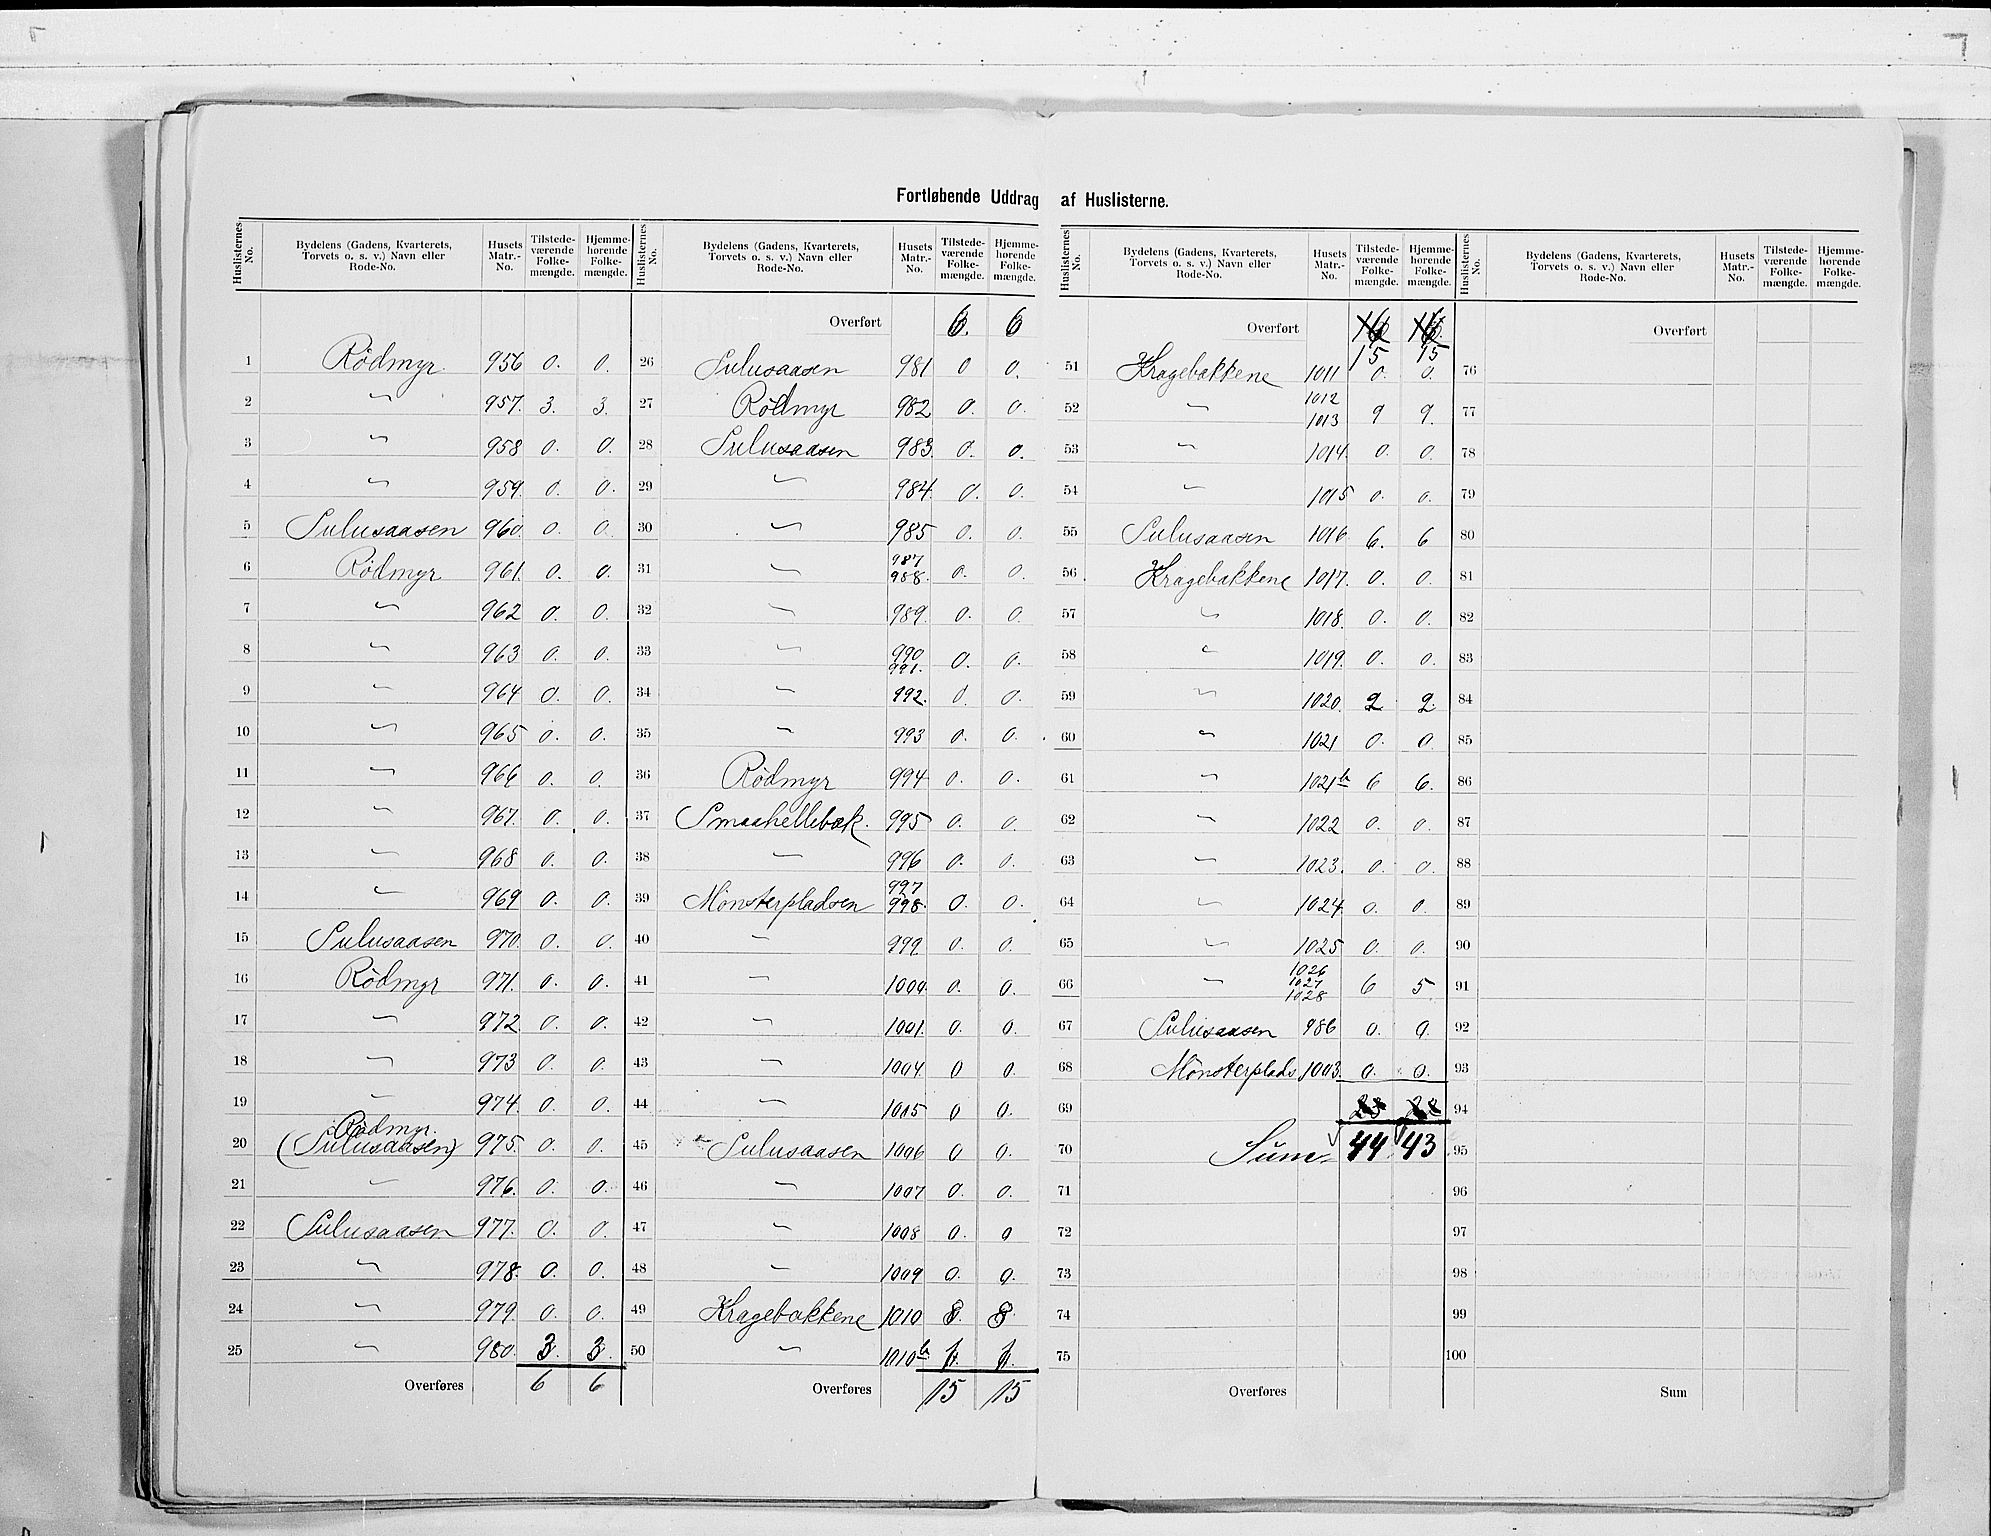 Fortløbende Uddrag af Huslisterne.
Huslisternes No. | Bydelens (Gadens, Kvarterets, Torvets o. s. v.) Navn eller Rode-No. | Husets Matr.-No. | Tilstedeværende Folkemængde. | Hjemmehørende Folkemængde.
1 Rödmyr. 956 0. 0.
2 〃 957. 3. 3.
3 〃 958 0. 0.
4 〃 959. 0. 0.
5 Sulusaasen 960. 0. 0.
6 Rödmyr 961. 0. 0.
7 〃 962 0. 0.
8 〃 963 0. 0.
9 〃 964 0. 0.
10 〃 965 0. 0.
11 〃 966 0. 0.
12 〃 967. 0. 0.
13 〃 968 0. 0.
14 〃 969 0. 0.
15 Sulusaasen 970. 0. 0.
16 Rödmyr 971. 0. 0.
17 〃 972 0. 0.
18 〃 973 0. 0.
19 〃 974. 0. 0.
Rödmyr.
20 (Sulusaasen) 975. 0. 0.
21 〃 976. 0. 0.
22 Sulusaasen 977. 0. 0.
23 〃 978. 0. 0.
24 〃 979. 0. 0.
25 〃 980. 3. 3.
Overføres 6 6
Huslisternes No. | Bydelens (Gadens, Kvarterets, Torvets o. s. v.) Navn eller Rode-No. | Husets Matr.-No. | Tilstedeværende Folkemængde. | Hjemmehørende Folkemængde.
Overført 6. 6
26 Sulusaasen 981 0 0.
27 Rödmyr 982 0. 0.
28 Sulusaasen 983. 0. 0.
29 〃 984. 0. 0.
30 〃 985 0. 0.
31 〃 987 988. 0. 0.
32 〃 989. 0. 0.
33 〃 990 991. 0. 0.
34 〃 992. 0 0.
35 〃 993 0. 0.
36 Rödmyr 994 0. 0.
37 Smaahellebæk. 995 0. 0.
38 〃 996 0. 0.
39 Mönsterpladsen 997 998. 0. 0.
40 〃 999. 0. 0.
41 〃 1000. 0. 0.
42 〃 1001. 0. 0.
43 〃 1004. 0 0.
44 〃 1005 0 0.
45 Sulusaasen 1006 0 0.
46 〃 1007 0. 0.
47 〃 1008 0. 0
48 〃 1009 0. 0.
49 Kragebakkene 1010 8. 8.
50 〃 1010b 1. 1.
Overføres 15 15
Huslisternes No. | Bydelens (Gadens, Kvarterets, Torvets o. s. v.) Navn eller Rode-No. | Husets Matr.-No. | Tilstedeværende Folkemængde. | Hjemmehørende Folkemængde.
Overført 16 16
15 15
51 Kragebakkene 1011 0. 0.
52 〃 1012 1013 9 9.
53 〃 1014. 0. 0.
54 〃 1015 0. 0.
55 Sulusaasen 1016 6. 6
56 Kragebakkene 1017. 0. 0.
57 〃 1018. 0. 0.
58 〃 1019. 0. 0.
59 〃 1020. 2. 2.
60 〃 1021 0. 0.
61 〃 1021b 6 6.
62 〃 1022 0. 0.
63 〃 1023. 0. 0.
64 〃 1024. 0. 0.
65 〃 1025 0. 0.
66 〃 1026 1027 1028 6 5.
67 Sulusaasen 986 0. 0.
68 Mönsterplads. 1003. 0. 0.
69
70 Sum. 44. 43
71
72
73
74
75
Overføres
Huslisternes No. | Bydelens (Gadens, Kvarterets, Torvets o. s. v.) Navn eller Rode-No. | Husets Matr.-No. | Tilstedeværende Folkemængde. | Hjemmehørende Folkemængde.
Overført
76
77
78
79
80
81
82
83
84
85
86
87
88
89
90
91
92
93
94
95
96
97
98
99
100
Sum